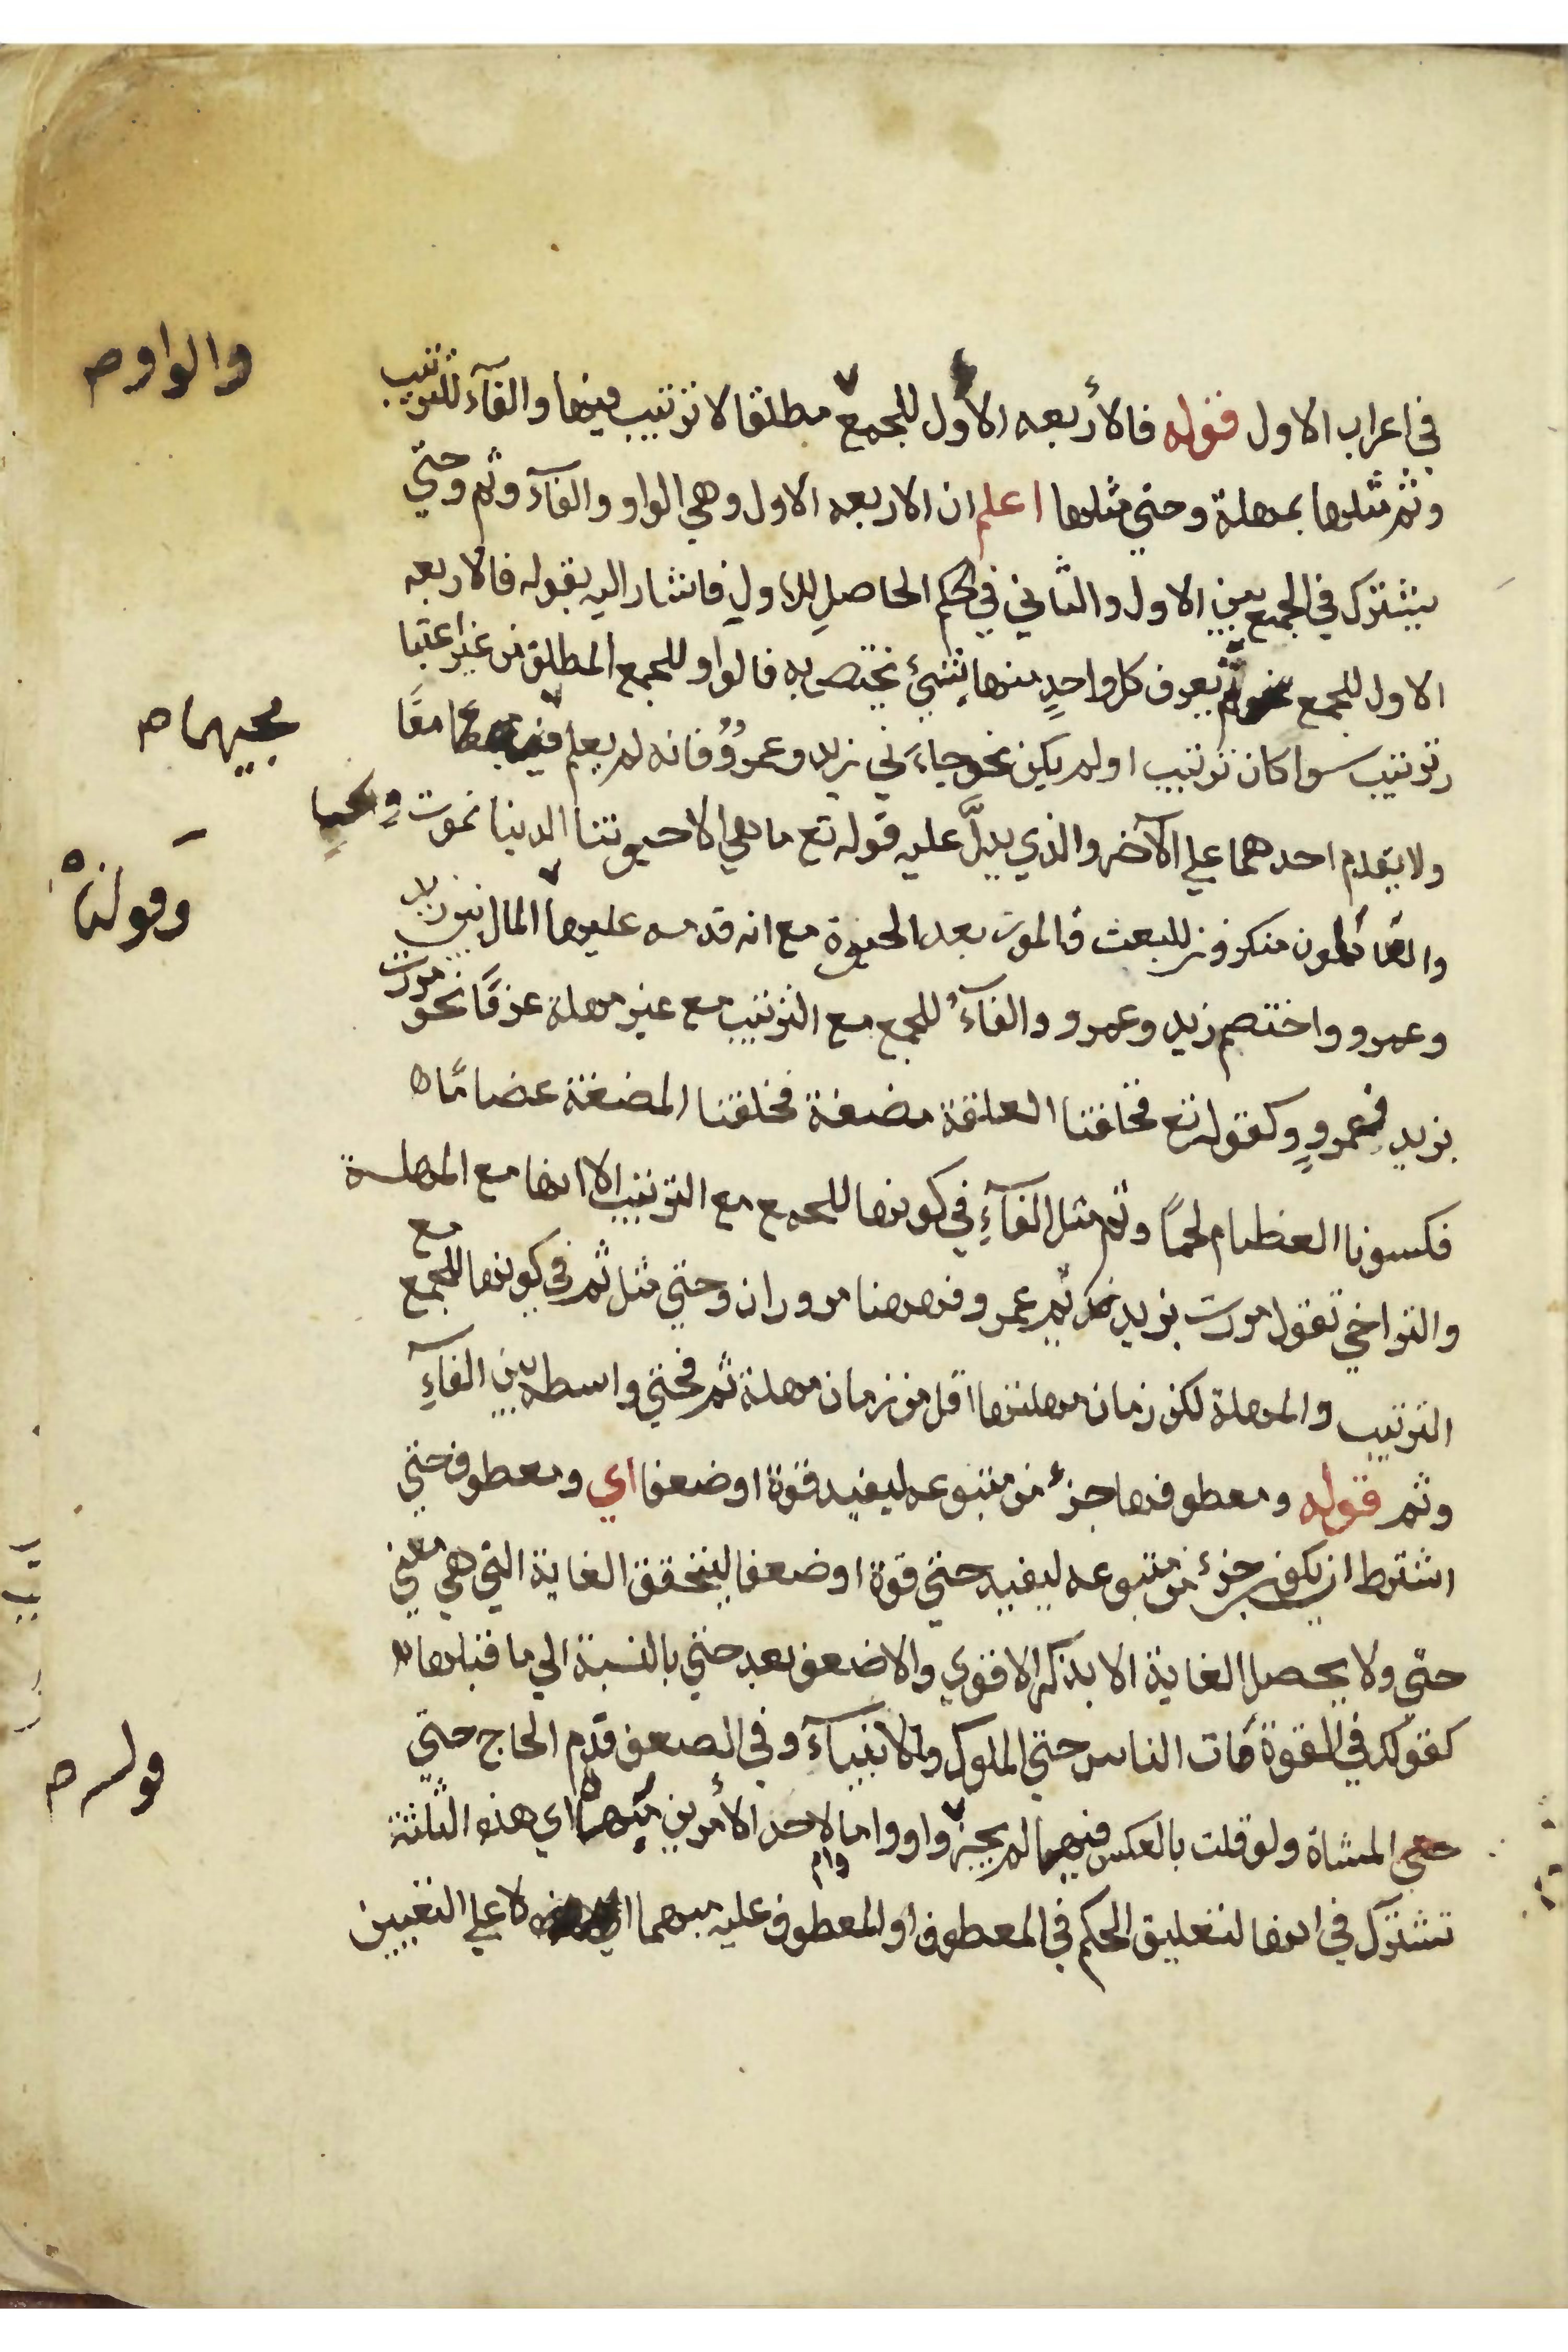 في اعراب الاول قوله فالأربعه الأول للجمع مطلقا لا ترتيب فيها والفآء للترتيب
والواو صح
وثم مثلها بمهلة وحتي مثلها اعلم ان الاربعه الاول وهي الواو والفآء وثم وحتي
يشترك في الجمع بين الاول والثاني في الحكم الحاصلِ للاولِ فاشار اليه بقوله فالاربعه
الاول للجمع ثم يعرف كل واحدٍ منها بشئ يختص به فالواو للجمع المطلق من غير اعتبا
ر ترتيب سوا كان ترتيب او لم يكن نحو جاءَني زيد وعمروٌ فانه لم يعلم معًا
مجيهما صح
ولا يقدم احدهما علي الآخر والذي يدلّ عليه قوله تع ما هي الا حيوتنا الدينا نموت ونحيا
والقائلون منكرون للبعث فالموت بعد الحيوة مع انه قدمه عليها المال بين زيد
وقولنا
وعمرو واختصم زيد وعمرو والفآءُ للجمع مع الترتيب مع غير مهلة عرفًا نحو مررت
بزيد فعمروٍ وكقوله تع فخلقنا العلقة مضغة فخلقنا المضغة عضامًا
فكسونا العظام لحمًا وثم مثل الفآءِ في كونها للجمع مع الترتيب الا انها مع المهلة
والتراخي تقول مررت بزيد ثم عمرو فههنا مروران وحتي مثل ثم في كونها للجمع مع
الترتيب والمهلة لكن زمان مهلتها اقل من زمان مهلة ثم فحتي واسطه بين الفآءِ
وثم قوله ومعطوفها جزءٌ من متبوعه ليفيد قوة او ضعفا اي ومعطوف حتي
اشترط ان يكون جزءٌ من متبوعه ليفيد حتي قوة او ضعفا ليتحقق الغاية التي هي معني
حتي ولا يحصل الغاية الا بذكر الاقوي والاضعف بعد حتي بالنسبة الي ما قبلها
كقولك في القوة مَات الناس حتي الملوك والانبيآء وفي الضعف قدِم الحاج حتيّ
حتي المشاة ولو قلت بالعكس فيهما لم يجز واو واما وام لاحد الأمرين مبهما اي هذه الثلثة
قوله صح
تشترك في انها لتعليق الحكم في المعطوف او المعطوف عليه مبهما لا علي التعيين